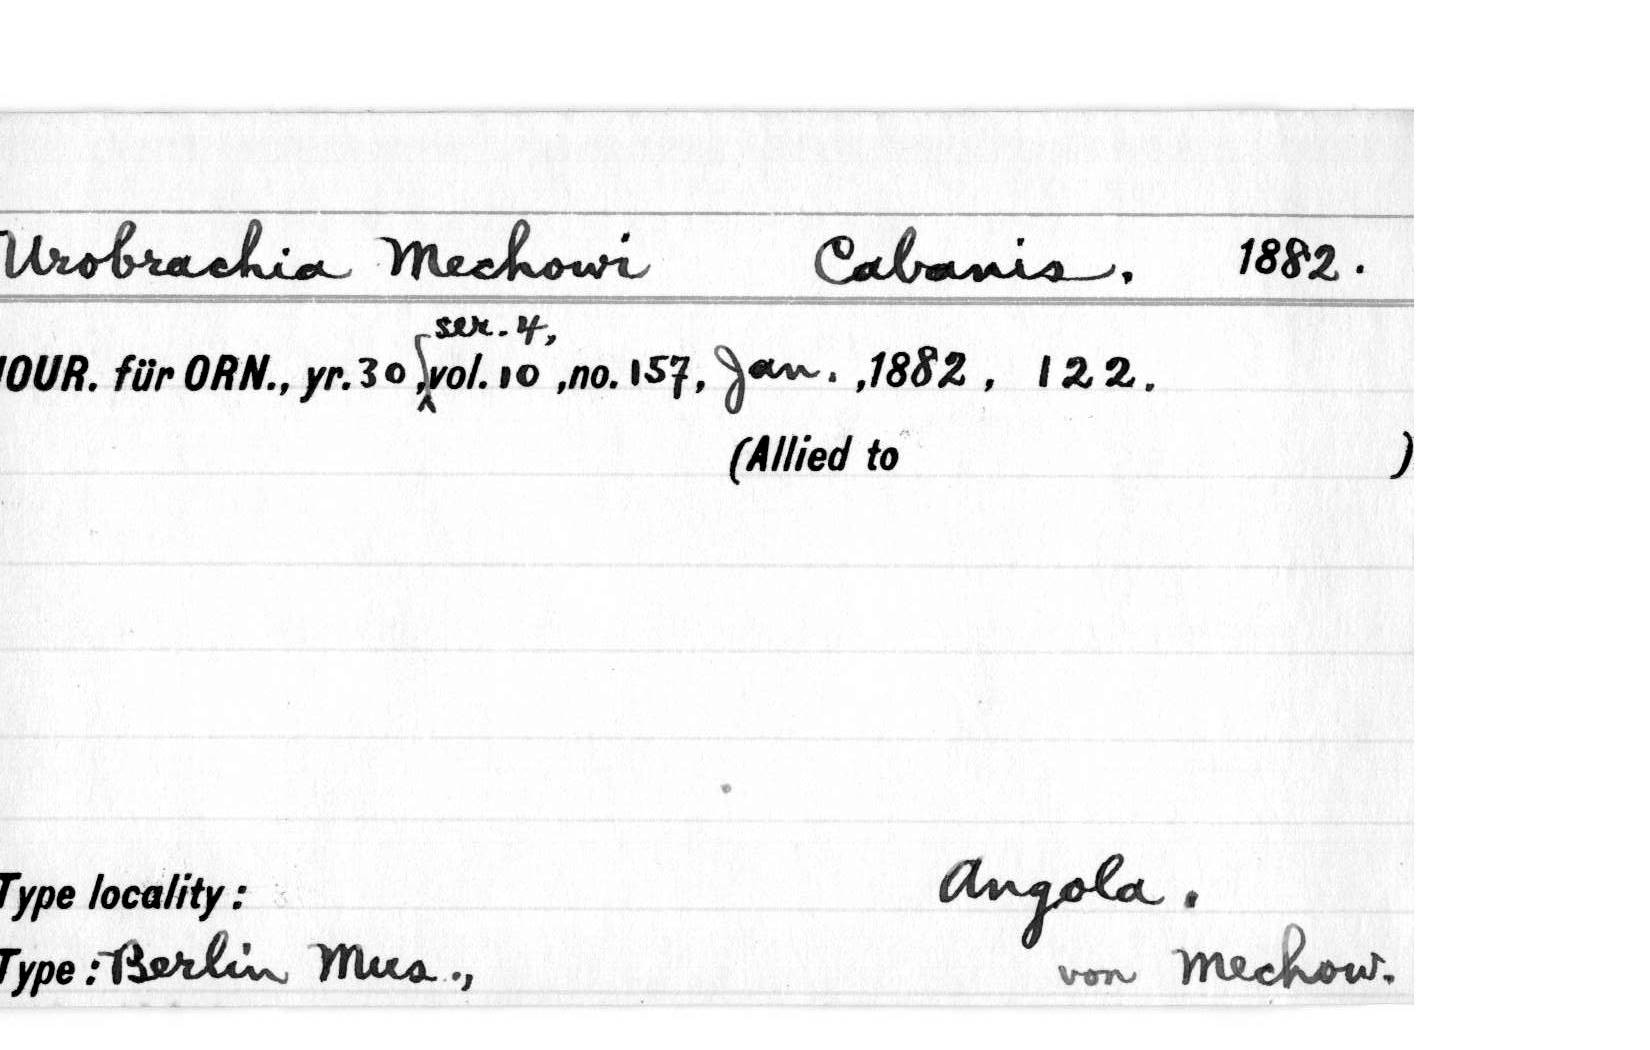 Urobrachia Mechowi Cabanis. 1882.
JOUR. für ORN., yr. 30, ser. 4, vol. 10, no. 157, Jan., 1882, 122.
(Allied to )
Type locality: Angola.
Type: Berlin Mus., von Mechow.